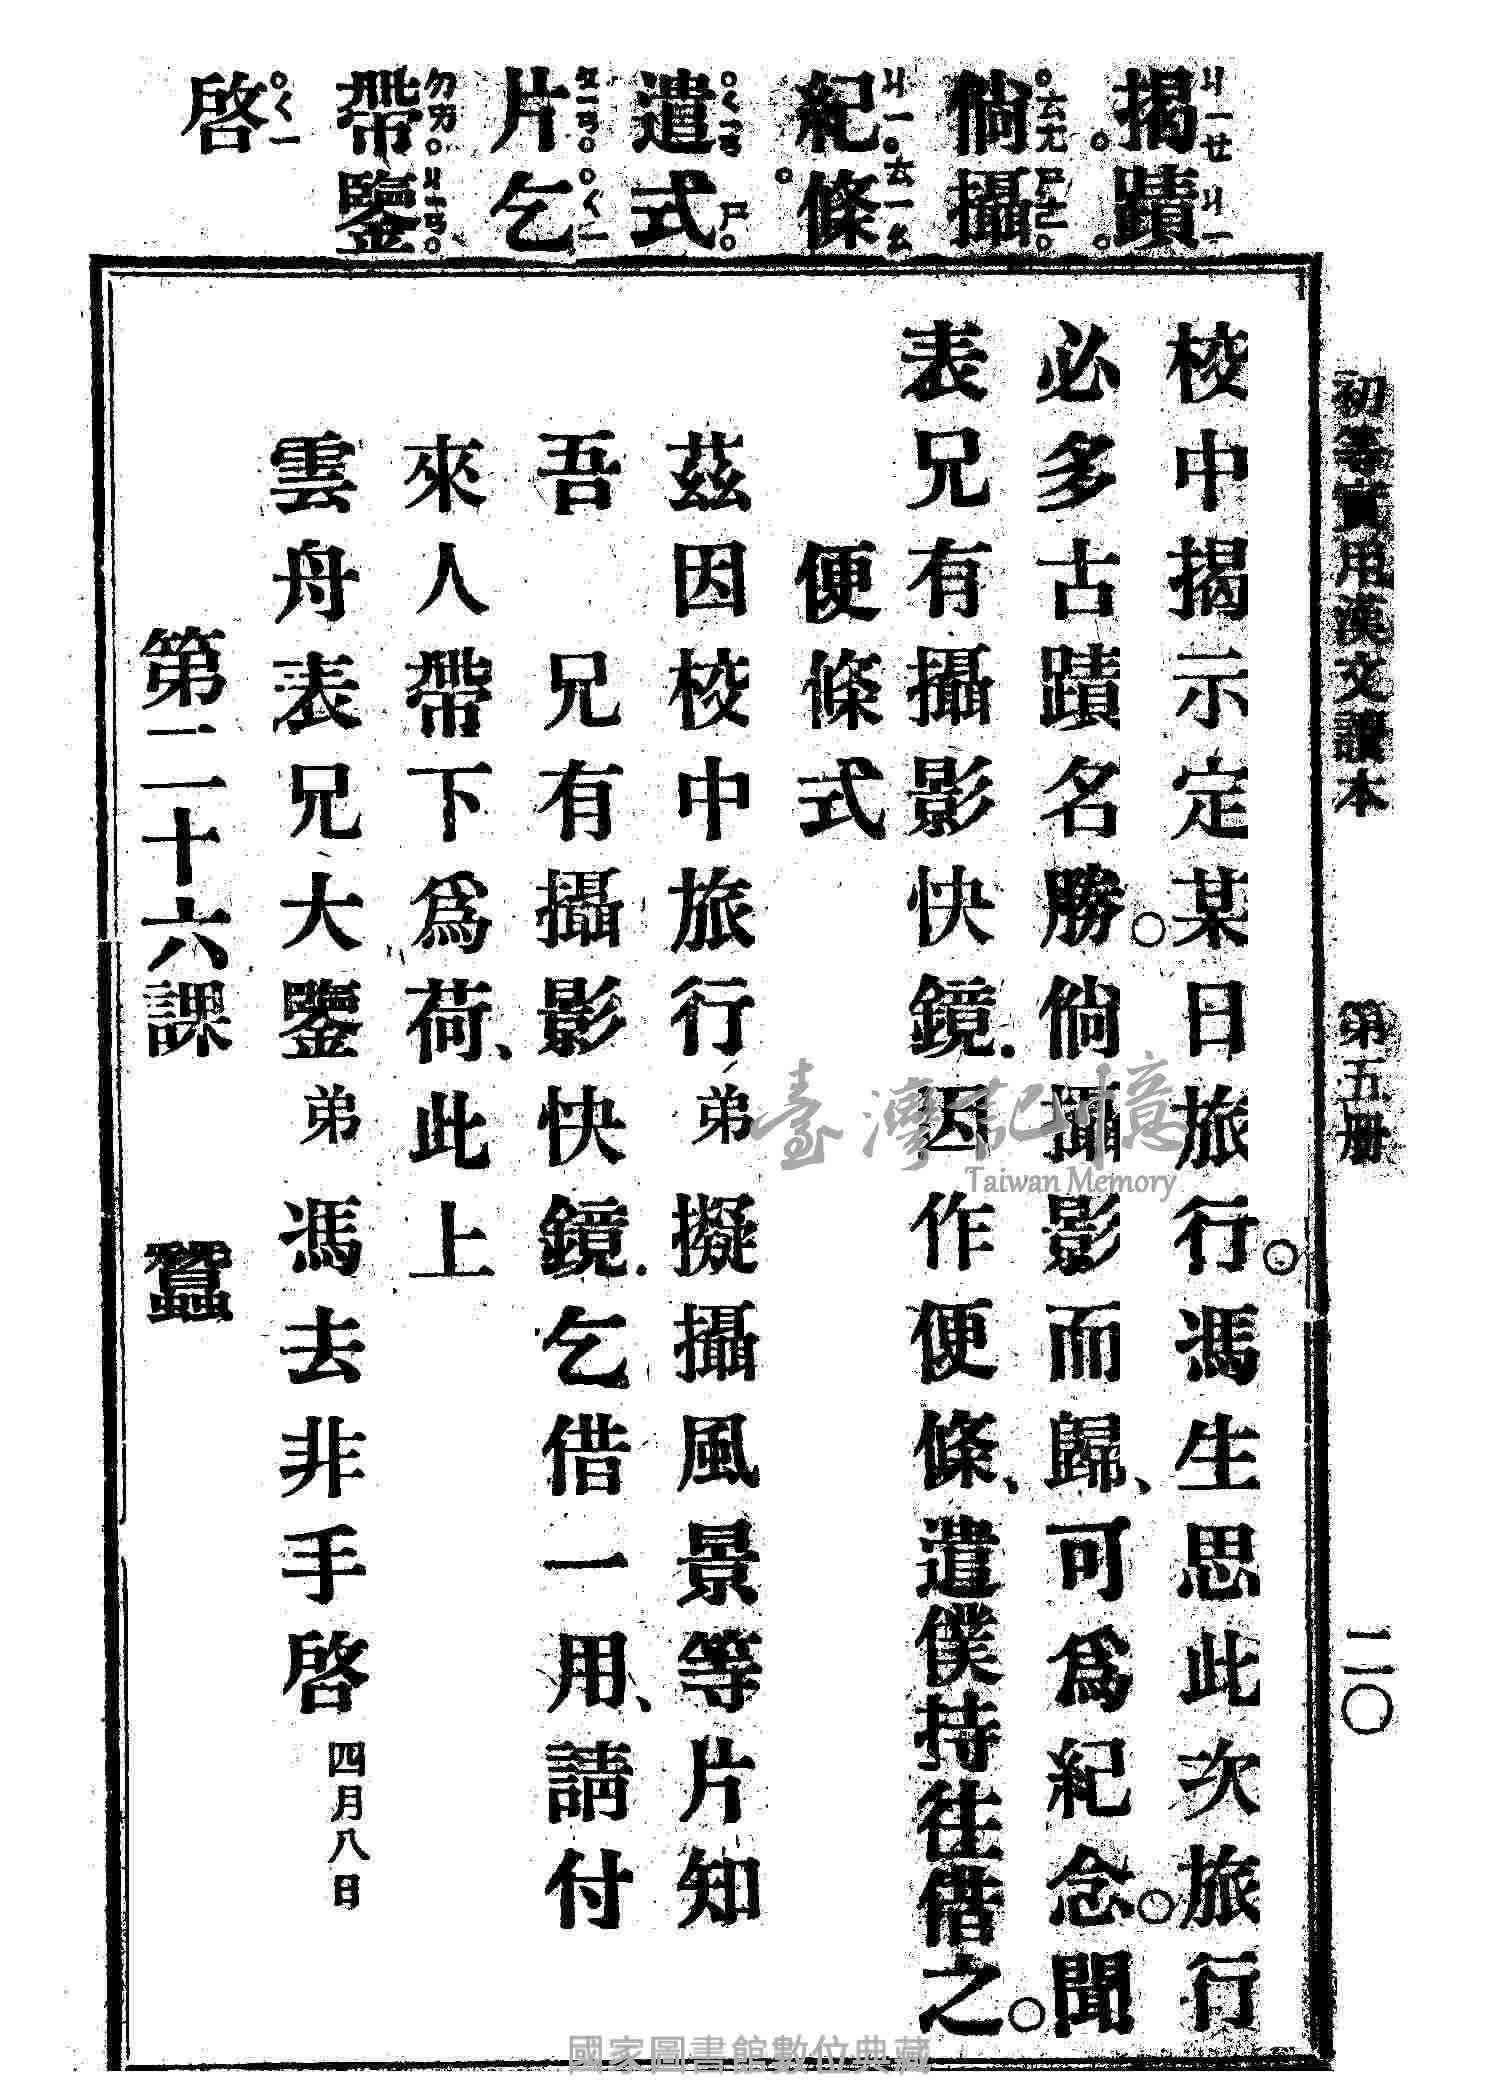 初等實用漢文讀本　第五册　二〇
揭ㄐㄧㄝ　蹟ㄐㄧ
倘ㄊㄤ　攝ㄕㄜ
紀ㄐㄧ　條ㄊㄧㄠ
遣ㄑㄧㄢ　式ㄕ
片ㄆㄧㄢ　乞ㄑㄧ
帶ㄉㄞ　鑒ㄐㄧㄢ
啓ㄑㄧ
校中揭示定某日旅行。馮生思此次旅行
必多古蹟名勝。倘攝影而歸、可爲紀念。聞
表兄有攝影快鏡.因作便條、遣僕持往借之。
便條式
茲因校中旅行弟擬攝風景等片知
吾　兄有攝影快鏡.乞借一用、請付
來人帶下爲荷、此上
雲舟表兄大鑒弟馮去非手啓四月八日
第二十六課　蠶
臺灣記憶
Taiwan Memory
國家圖書館數位典藏